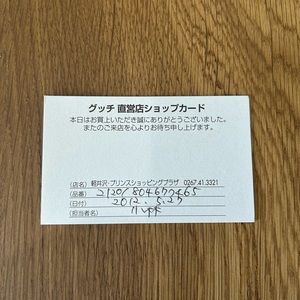 グッチ 直営店ショップカード
本日はお買上いただき誠にありがとうございました。
またのご来店を心よりお待ち申し上げます。
(店名) 軽井沢・プリンスショッピングプラザ 0267.41.3321
(品番)
(日付) 2012. 5.27
(担当者名)